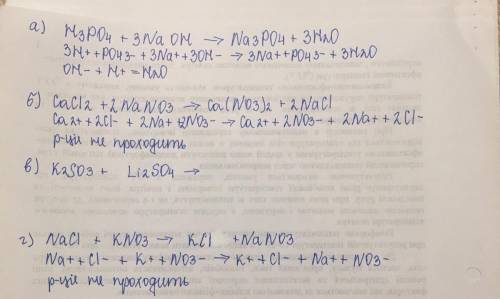 а) H3PO4 + 3NaOH → Na3PO4 + 3H2O
3H+ + PO43- + 3Na+ + 3OH- → 3Na+ + PO43- + 3H2O
OH- + H+ = H2O
б) CaCl2 + 2NaNO3 → Ca(NO3)2 + 2NaCl
Ca2+ + 2Cl- + 2Na+ + 2NO3- → Ca2+ + 2NO3- + 2Na+ + 2Cl-
р-ція не проходить
в) K2SO3 + Li2SO4 →
г) NaCl + KNO3 → KCl + NaNO3
Na+ + Cl- + K+ + NO3- → K+ + Cl- + Na+ + NO3-
р-ція не проходить